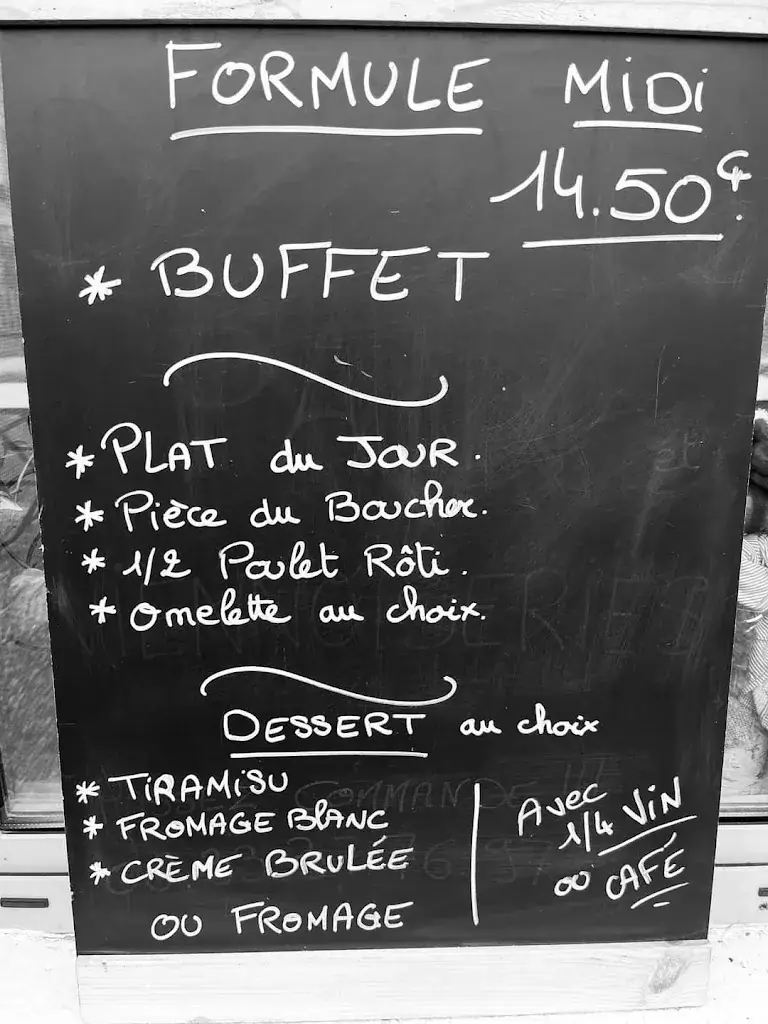 FORMULE MiDi
14.50€
* BUFFET
* PLAT du JOUR.
* Pièce du Boucher.
* 1/2 Poulet Rôti.
* Omelette au choix.
DESSERT au choix
* TiRAMiSU
* FROMAGE BLANC
* CRÈME BRULÉE
OU FROMAGE
Avec
1/4 ViN
ou CAFÉ